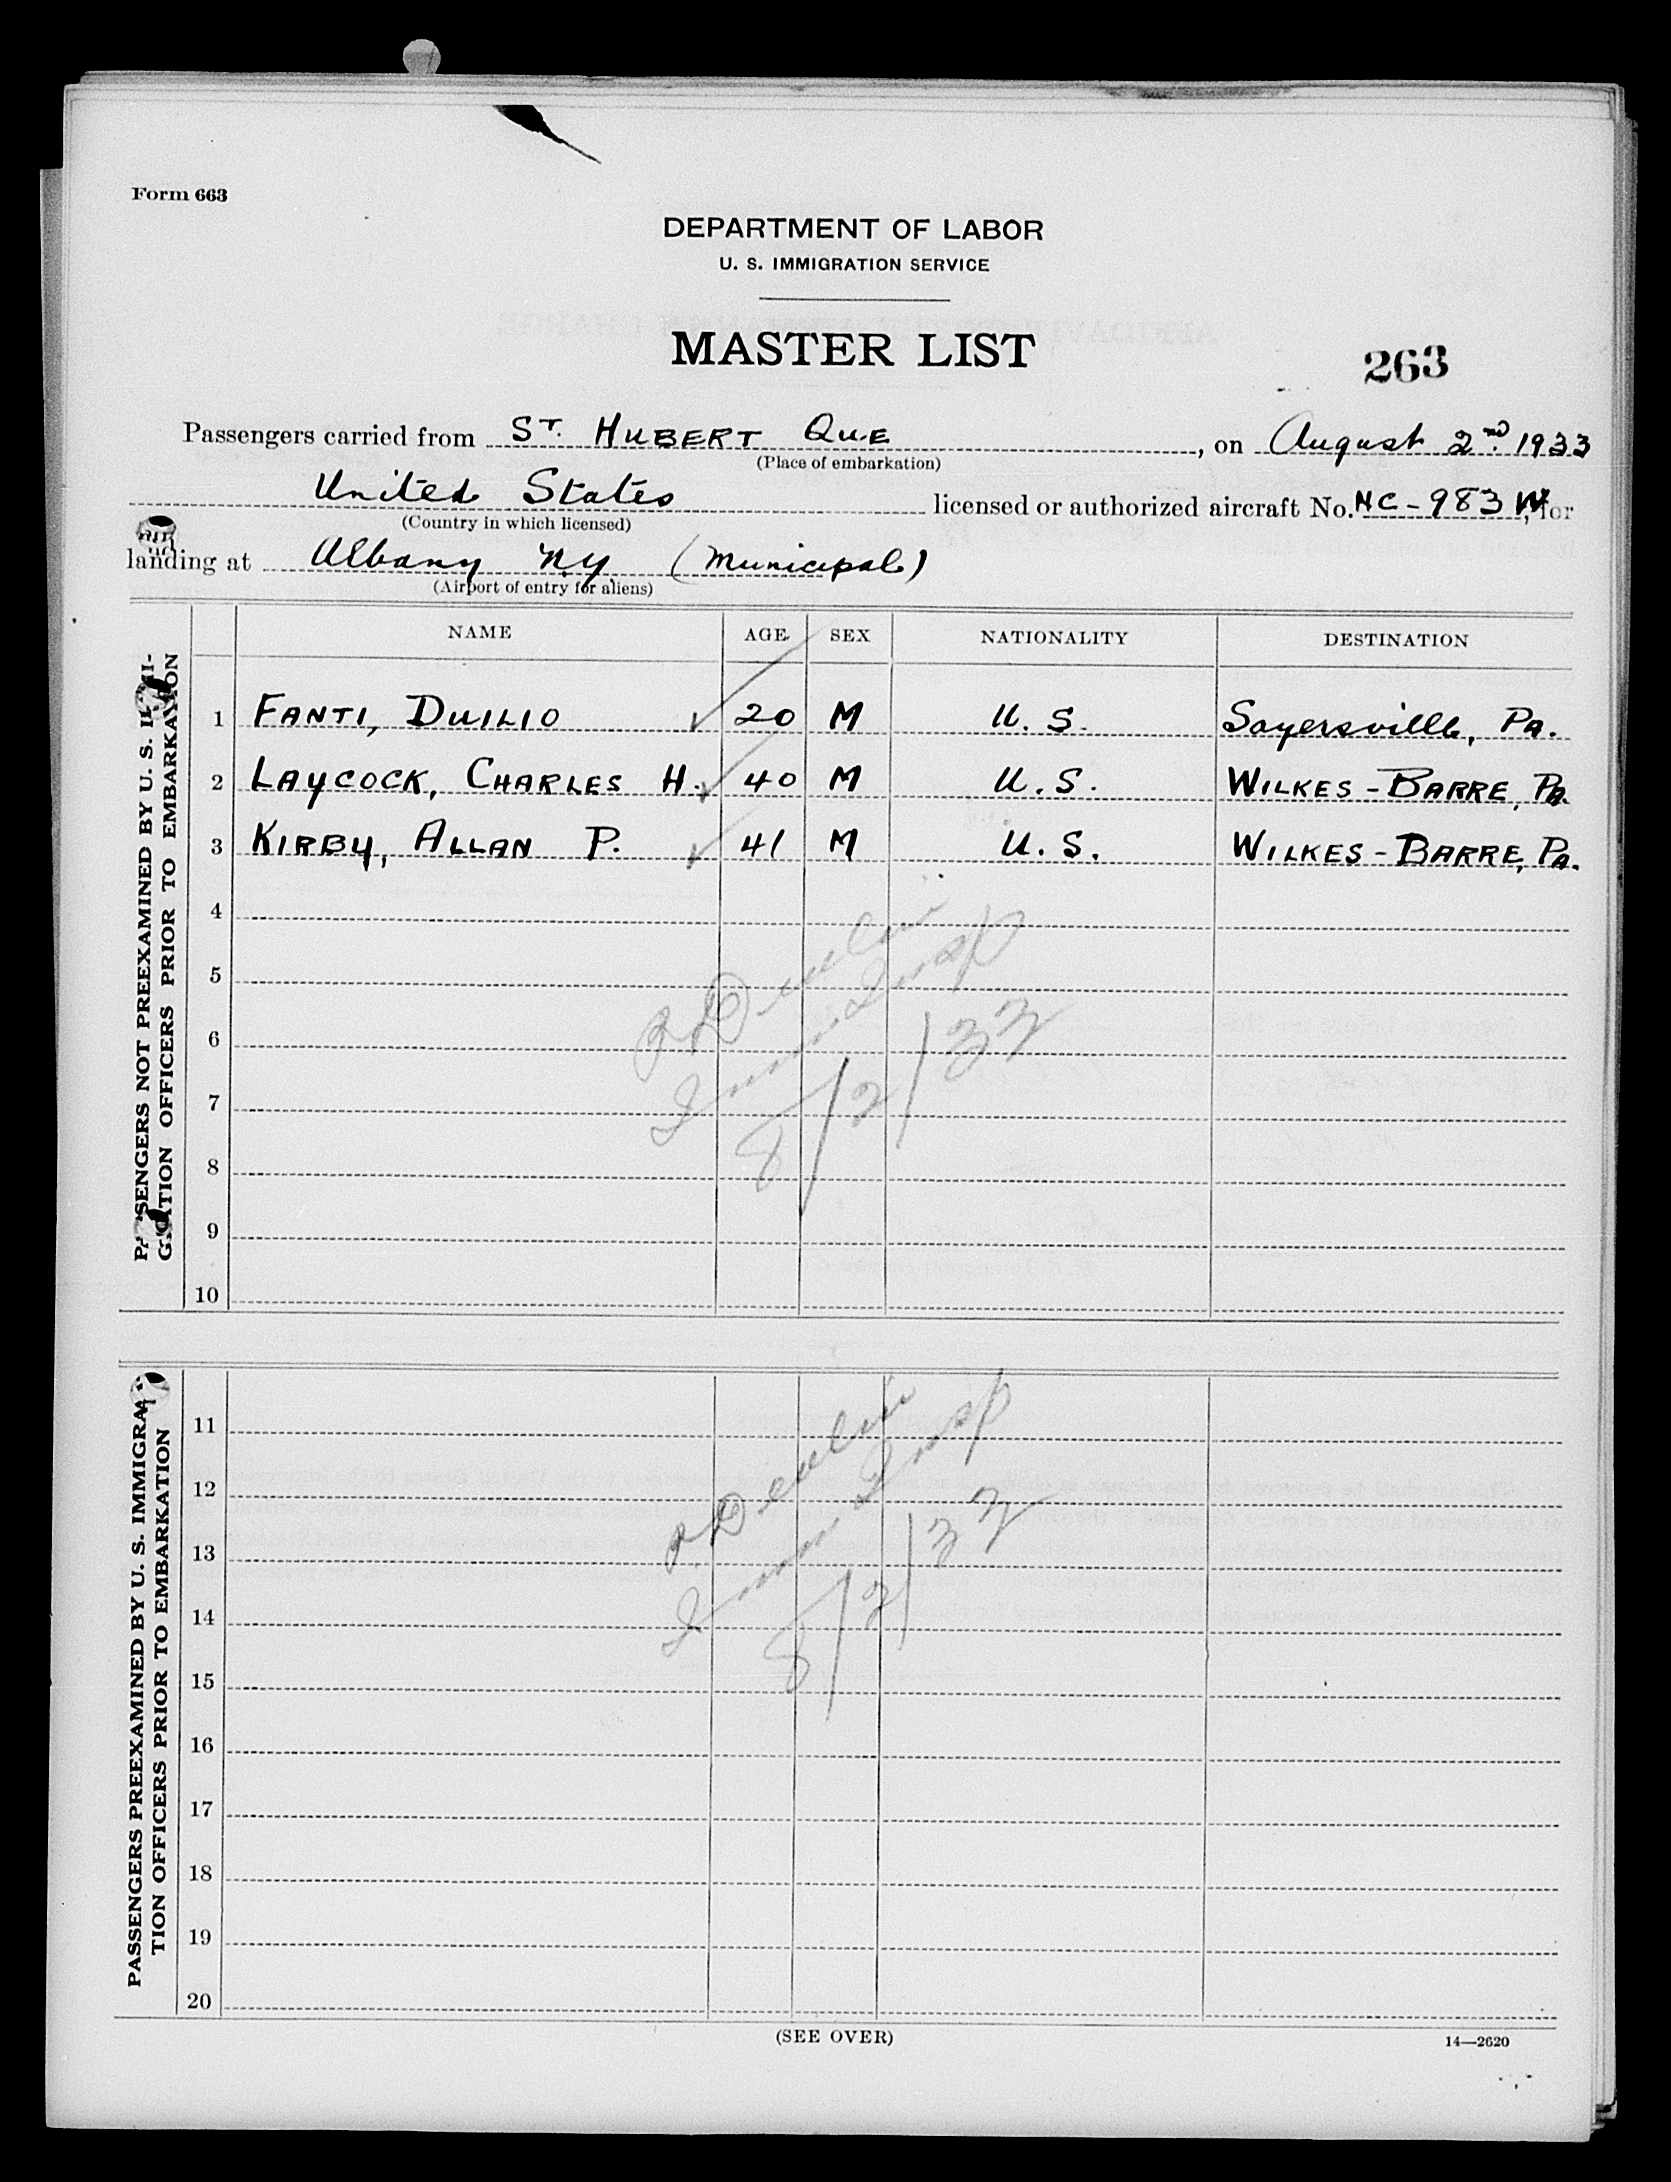 Form 663
DEPARTMENT OF LABOR
U. S. IMMIGRATION SERVICE
MASTER LIST
263
Passengers carried from ST. HUBERT QUE, on August 2nd 1933
(Place of embarkation)
United States licensed or authorized aircraft No. NC-983W, for
(Country in which licensed)
landing at Albany N.Y. (Municipal)
(Airport of entry for aliens)
NAME AGE SEX NATIONALITY DESTINATION
PASSENGERS NOT PREEXAMINED BY U. S. IMMI-
GRATION OFFICERS PRIOR TO EMBARKATION
1 FANTI, DUILIO 20 M U. S. Sayersville, PA.
2 LAYCOCK, CHARLES H. 40 M U. S. WILKES-BARRE, PA.
3 KIRBY, ALLAN P. 41 M U. S. WILKES-BARRE, PA.
4
5
6
7
8
9
10
Immi Insp
8/2/33
PASSENGERS PREEXAMINED BY U. S. IMMIGRA-
TION OFFICERS PRIOR TO EMBARKATION
11
12
13
14
15
16
17
18
19
20
Imm Insp
8/2/33
(SEE OVER)
14—2620